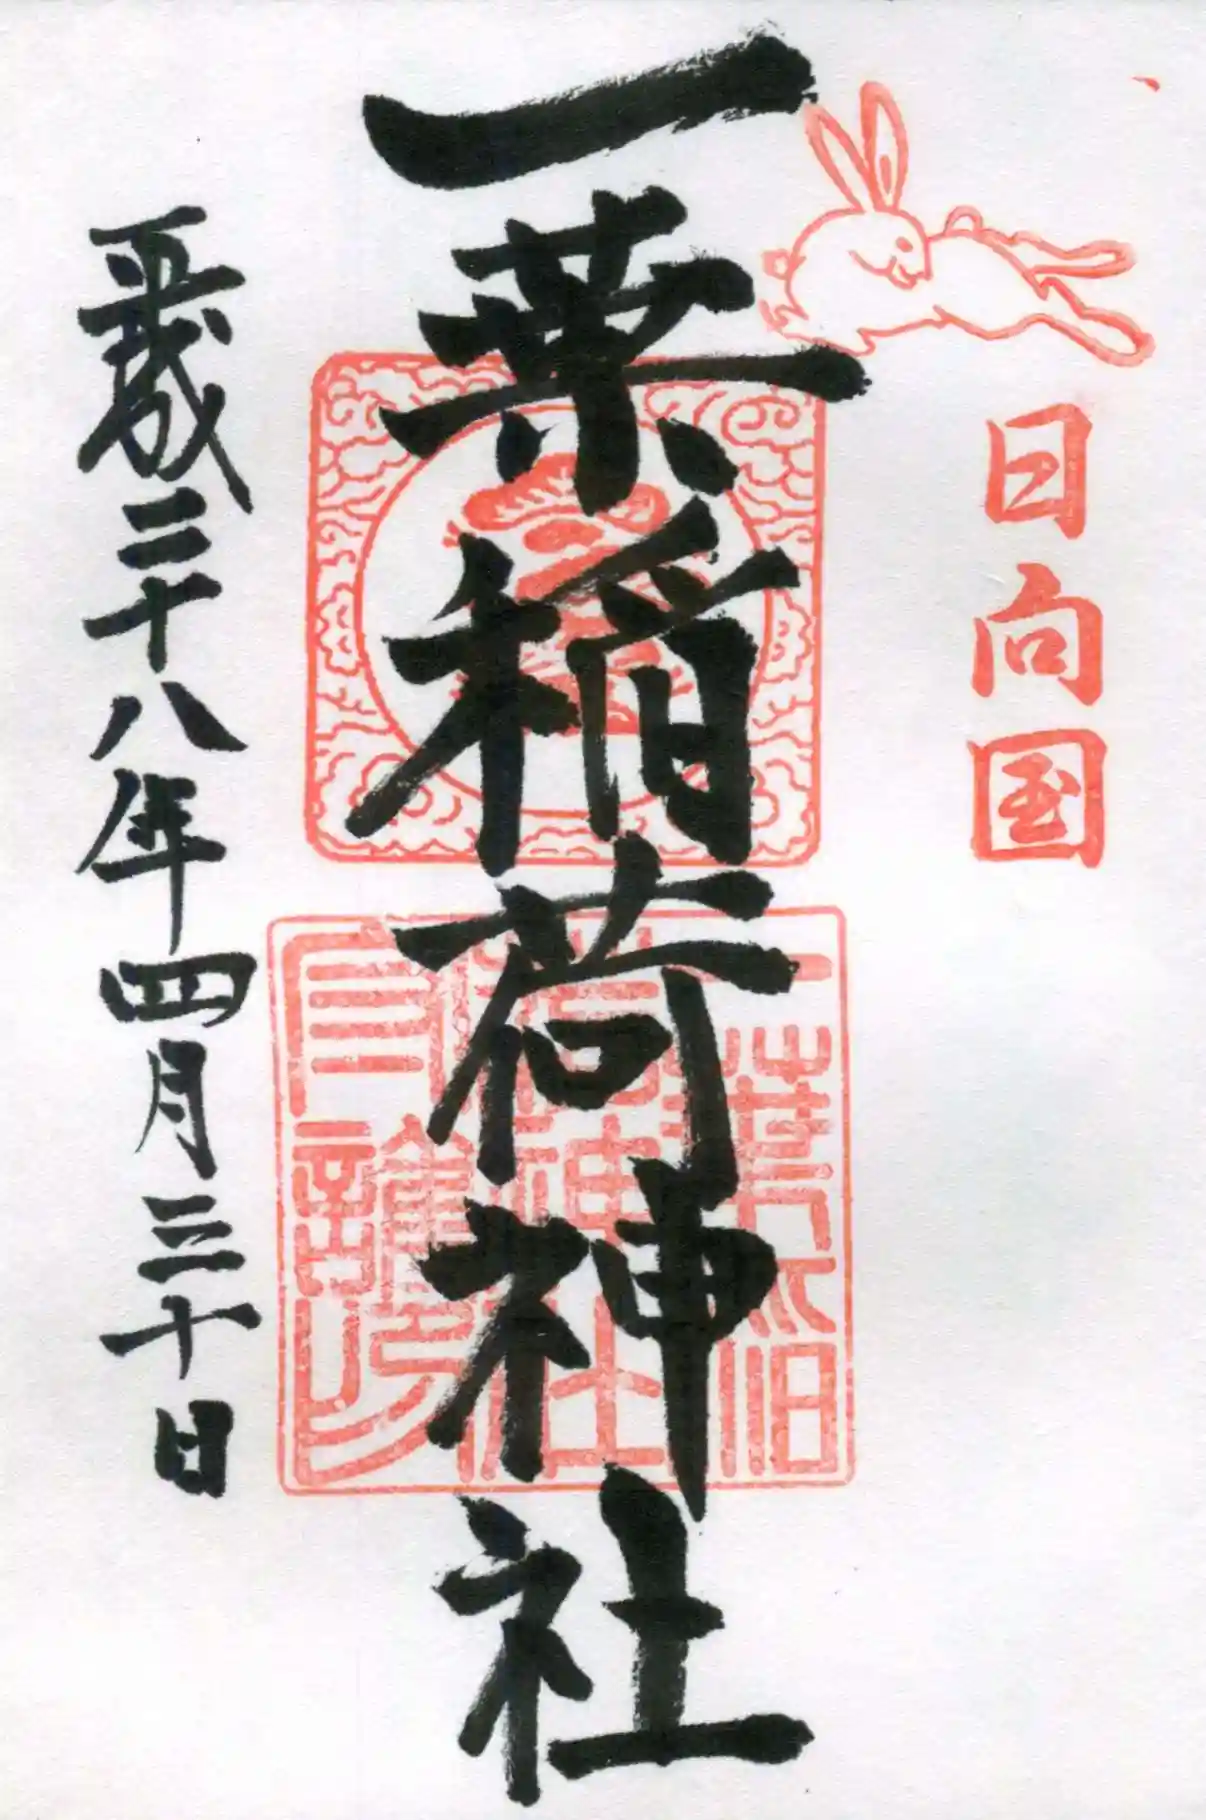 日向国
一葉稲荷神社
平成二十八年四月三十日